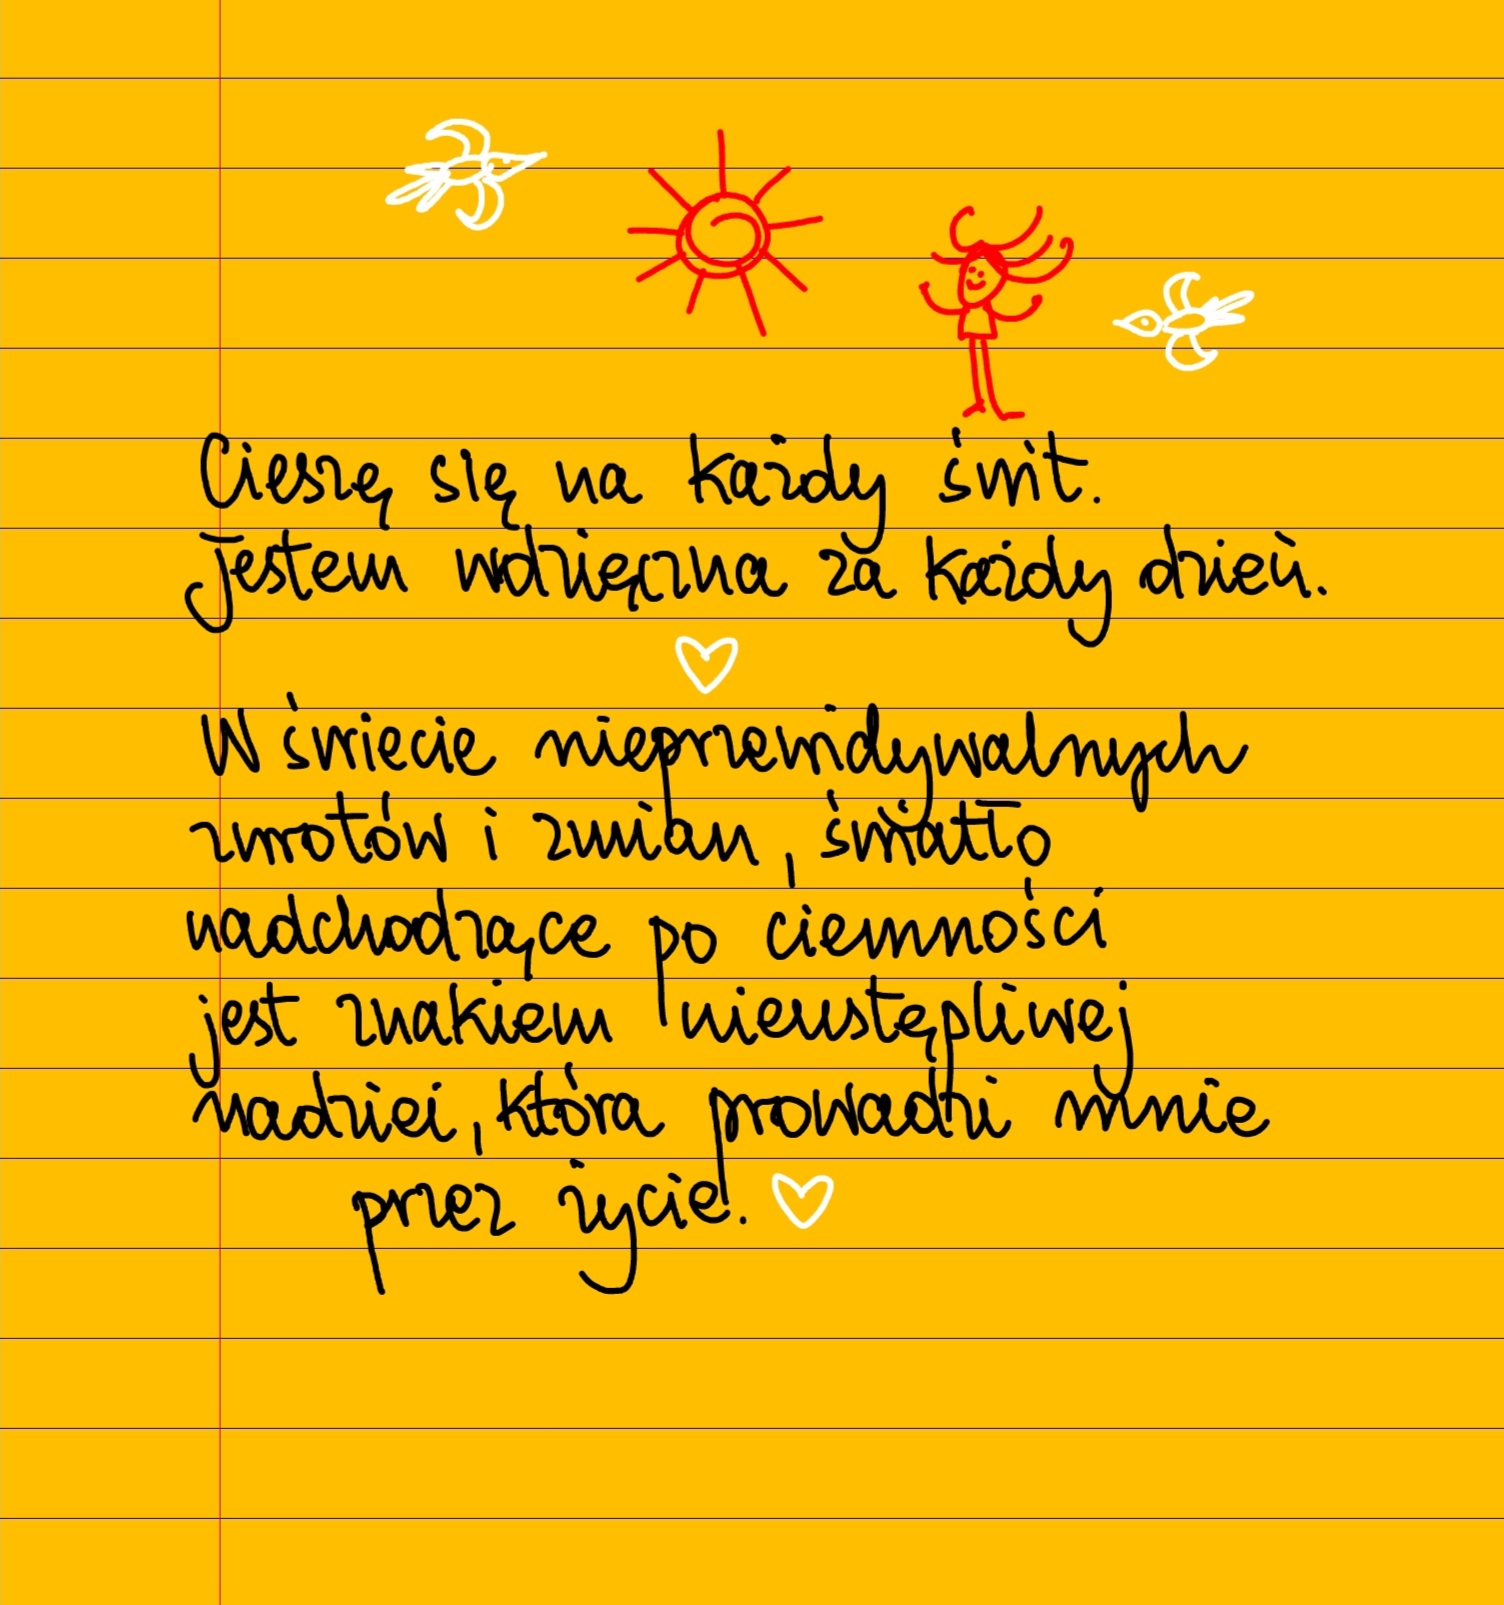 Cieszę się na każdy świt.
Jestem wdzięczna za każdy dzień.
W świecie nieprzewidywalnych
zwrotów i zmian, światło
nadchodzące po ciemności
jest znakiem nieustępliwej
nadziei, która prowadzi mnie
przez życie.